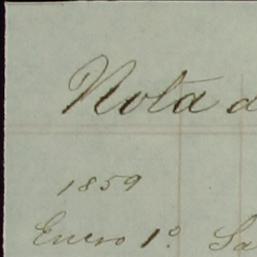 Nota d
1859
Enero 1º. Sa